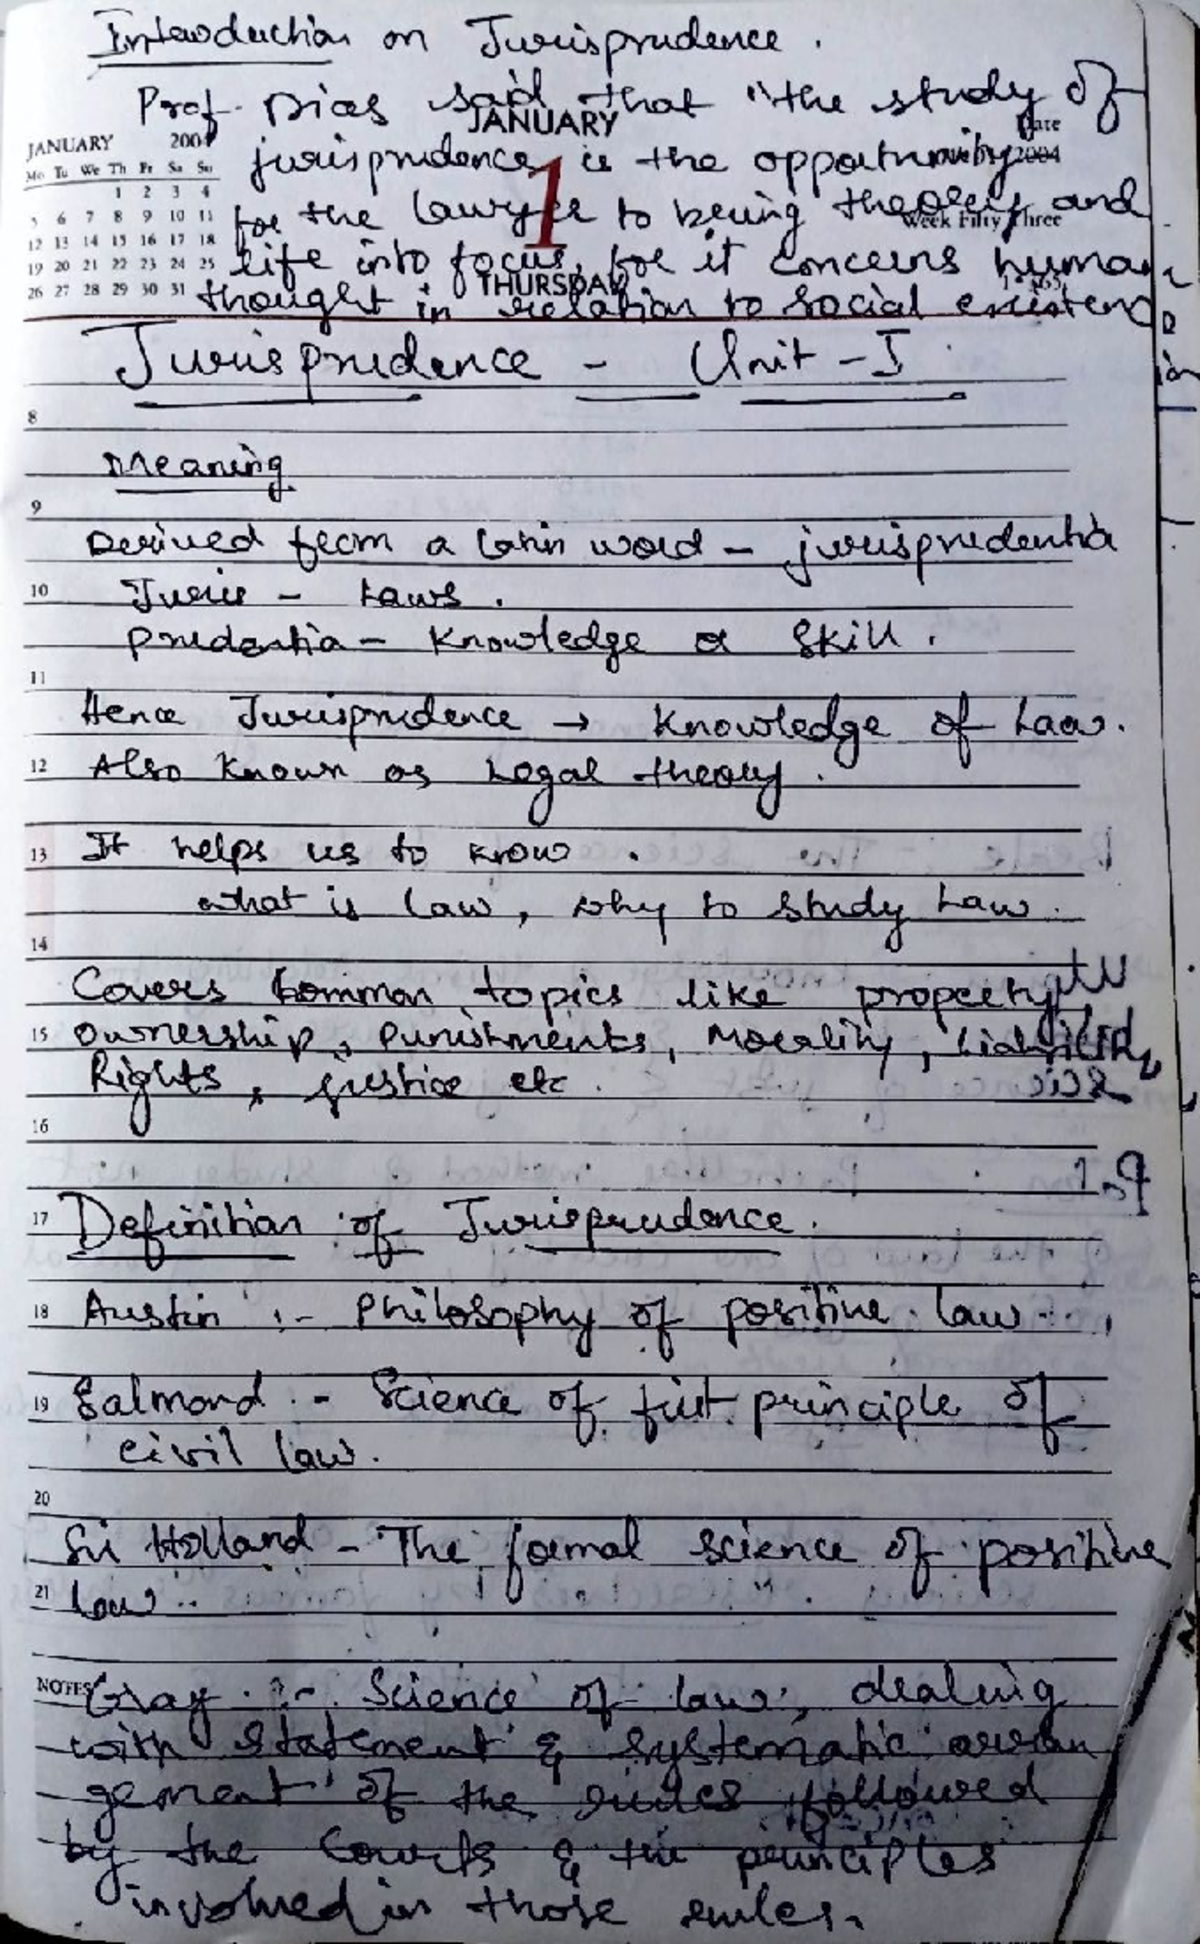 Introduction on Jurisprudence.
Prof. Dias said that "the study of
JANUARY
JANUARY 2004
Mo Tu We Th Fr Sa Su
1 2 3 4
5 6 7 8 9 10 11
12 13 14 15 16 17 18
19 20 21 22 23 24 25
26 27 28 29 30 31
1
THURSDAY
Week Fifty Three
jurisprudence is the opportunity
for the lawyer to bring theory and
life into focus, for it concerns human
thought in relation to social existence
Jurisprudence - Unit - I
8
Meaning
9
Derived from a Latin word - jurisprudentia
10 Juris - Laws.
prudentia - Knowledge or Skill.
11
Hence Jurisprudence → Knowledge of Law.
12 Also known as Legal theory.
13 It helps us to know.
what is law, why to study Law.
14
Covers Common topics like property
15 ownership, Punishments, Morality,
Rights, justice etc
16
17 Definition of Jurisprudence.
18 Austin :- Philosophy of positive law.
19 Salmond :- Science of first principle of
civil law.
20
Sir Holland - The formal science of positive
21 law.
NOTES Gray :- Science of law, dealing
with statement & systematic arran
gement of the rules followed
by the Courts & the principles
involved in those rules.